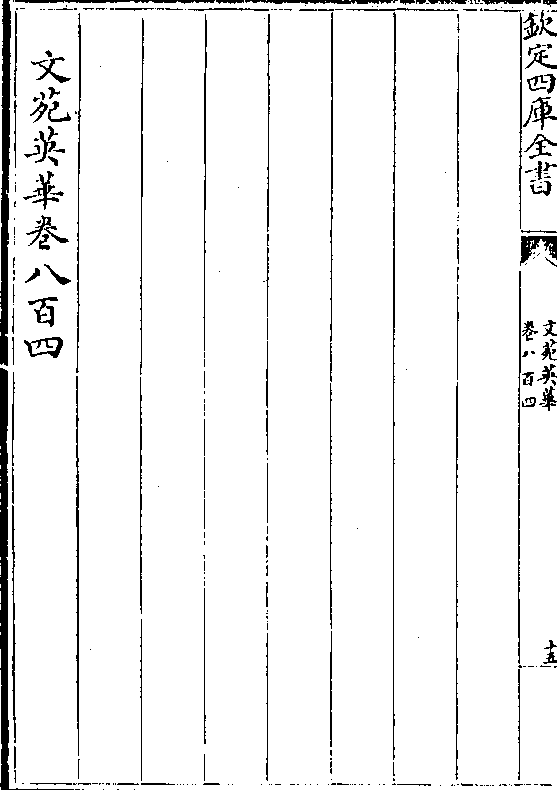 欽定四庫全書
文苑英華
卷八百四
十五
文苑英華卷八百四